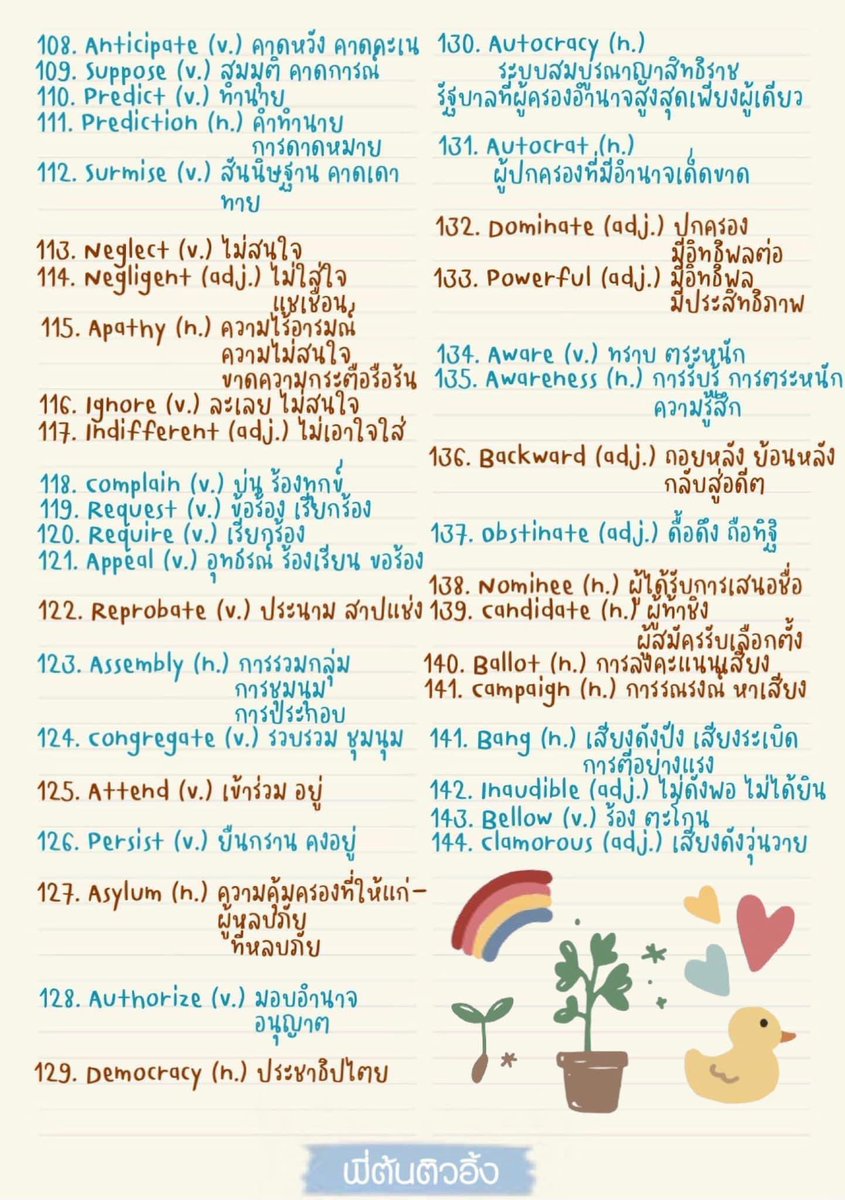 108. Anticipate (v.) คาดหวัง คาดคะเน
109. Suppose (v.) สมมุติ คาดการณ์
110. Predict (v.) ทำนาย
111. Prediction (n.) คำทำนาย
การคาดหมาย
112. Surmise (v.) สันนิษฐาน คาดเดา
ทาย
113. Neglect (v.) ไม่สนใจ
114. Negligent (adj.) ไม่ใส่ใจ
แชเชือน
115. Apathy (n.) ความไร้อารมณ์
ความไม่สนใจ
ขาดความกระตือรือร้น
116. Ignore (v.) ละเลย ไม่สนใจ
117. Indifferent (adj.) ไม่เอาใจใส่
118. Complain (v.) บ่น ร้องทุกข์
119. Request (v.) ข้อร้อง เรียกร้อง
120. Require (v.) เรียกร้อง
121. Appeal (v.) อุทธรณ์ ร้องเรียน ขอร้อง
122. Reprobate (v.) ประนาม สาปแช่ง
123. Assembly (n.) การรวมกลุ่ม
การชุมนุม
การประกอบ
124. Congregate (v.) รวบรวม ชุมนุม
125. Attend (v.) เข้าร่วม อยู่
126. Persist (v.) ยืนกราน คงอยู่
127. Asylum (n.) ความคุ้มครองที่ให้แก่-
ผู้หลบภัย
ที่หลบภัย
128. Authorize (v.) มอบอำนาจ
อนุญาต
129. Democracy (n.) ประชาธิปไตย
130. Autocracy (n.)
ระบบสมบูรณาญาสิทธิราช
รัฐบาลที่ผู้ครองอำนาจสูงสุดเพียงผู้เดียว
131. Autocrat (n.)
ผู้ปกครองที่มีอำนาจเด็ดขาด
132. Dominate (adj.) ปกครอง
มีอิทธิพลต่อ
133. Powerful (adj.) มีอิทธิพล
มีประสิทธิภาพ
134. Aware (v.) ทราบ ตระหนัก
135. Awareness (n.) การรับรู้ การตระหนัก
ความรู้สึก
136. Backward (adj.) ถอยหลัง ย้อนหลัง
กลับสู่อดีต
137. Obstinate (adj.) ดื้อดึง ถือทิฐิ
138. Nominee (n.) ผู้ได้รับการเสนอชื่อ
139. Candidate (n.) ผู้ท้าชิง
ผู้สมัครรับเลือกตั้ง
140. Ballot (n.) การลงคะแนนเสียง
141. Campaign (n.) การรณรงณ์ หาเสียง
141. Bang (n.) เสียงดังปัง เสียงระเบิด
การตีอย่างแรง
142. Inaudible (adj.) ไม่ดังพอ ไม่ได้ยิน
143. Bellow (v.) ร้อง ตะโกน
144. Clamorous (adj.) เสียงดังวุ่นวาย
พี่ต้นติวอิ้ง